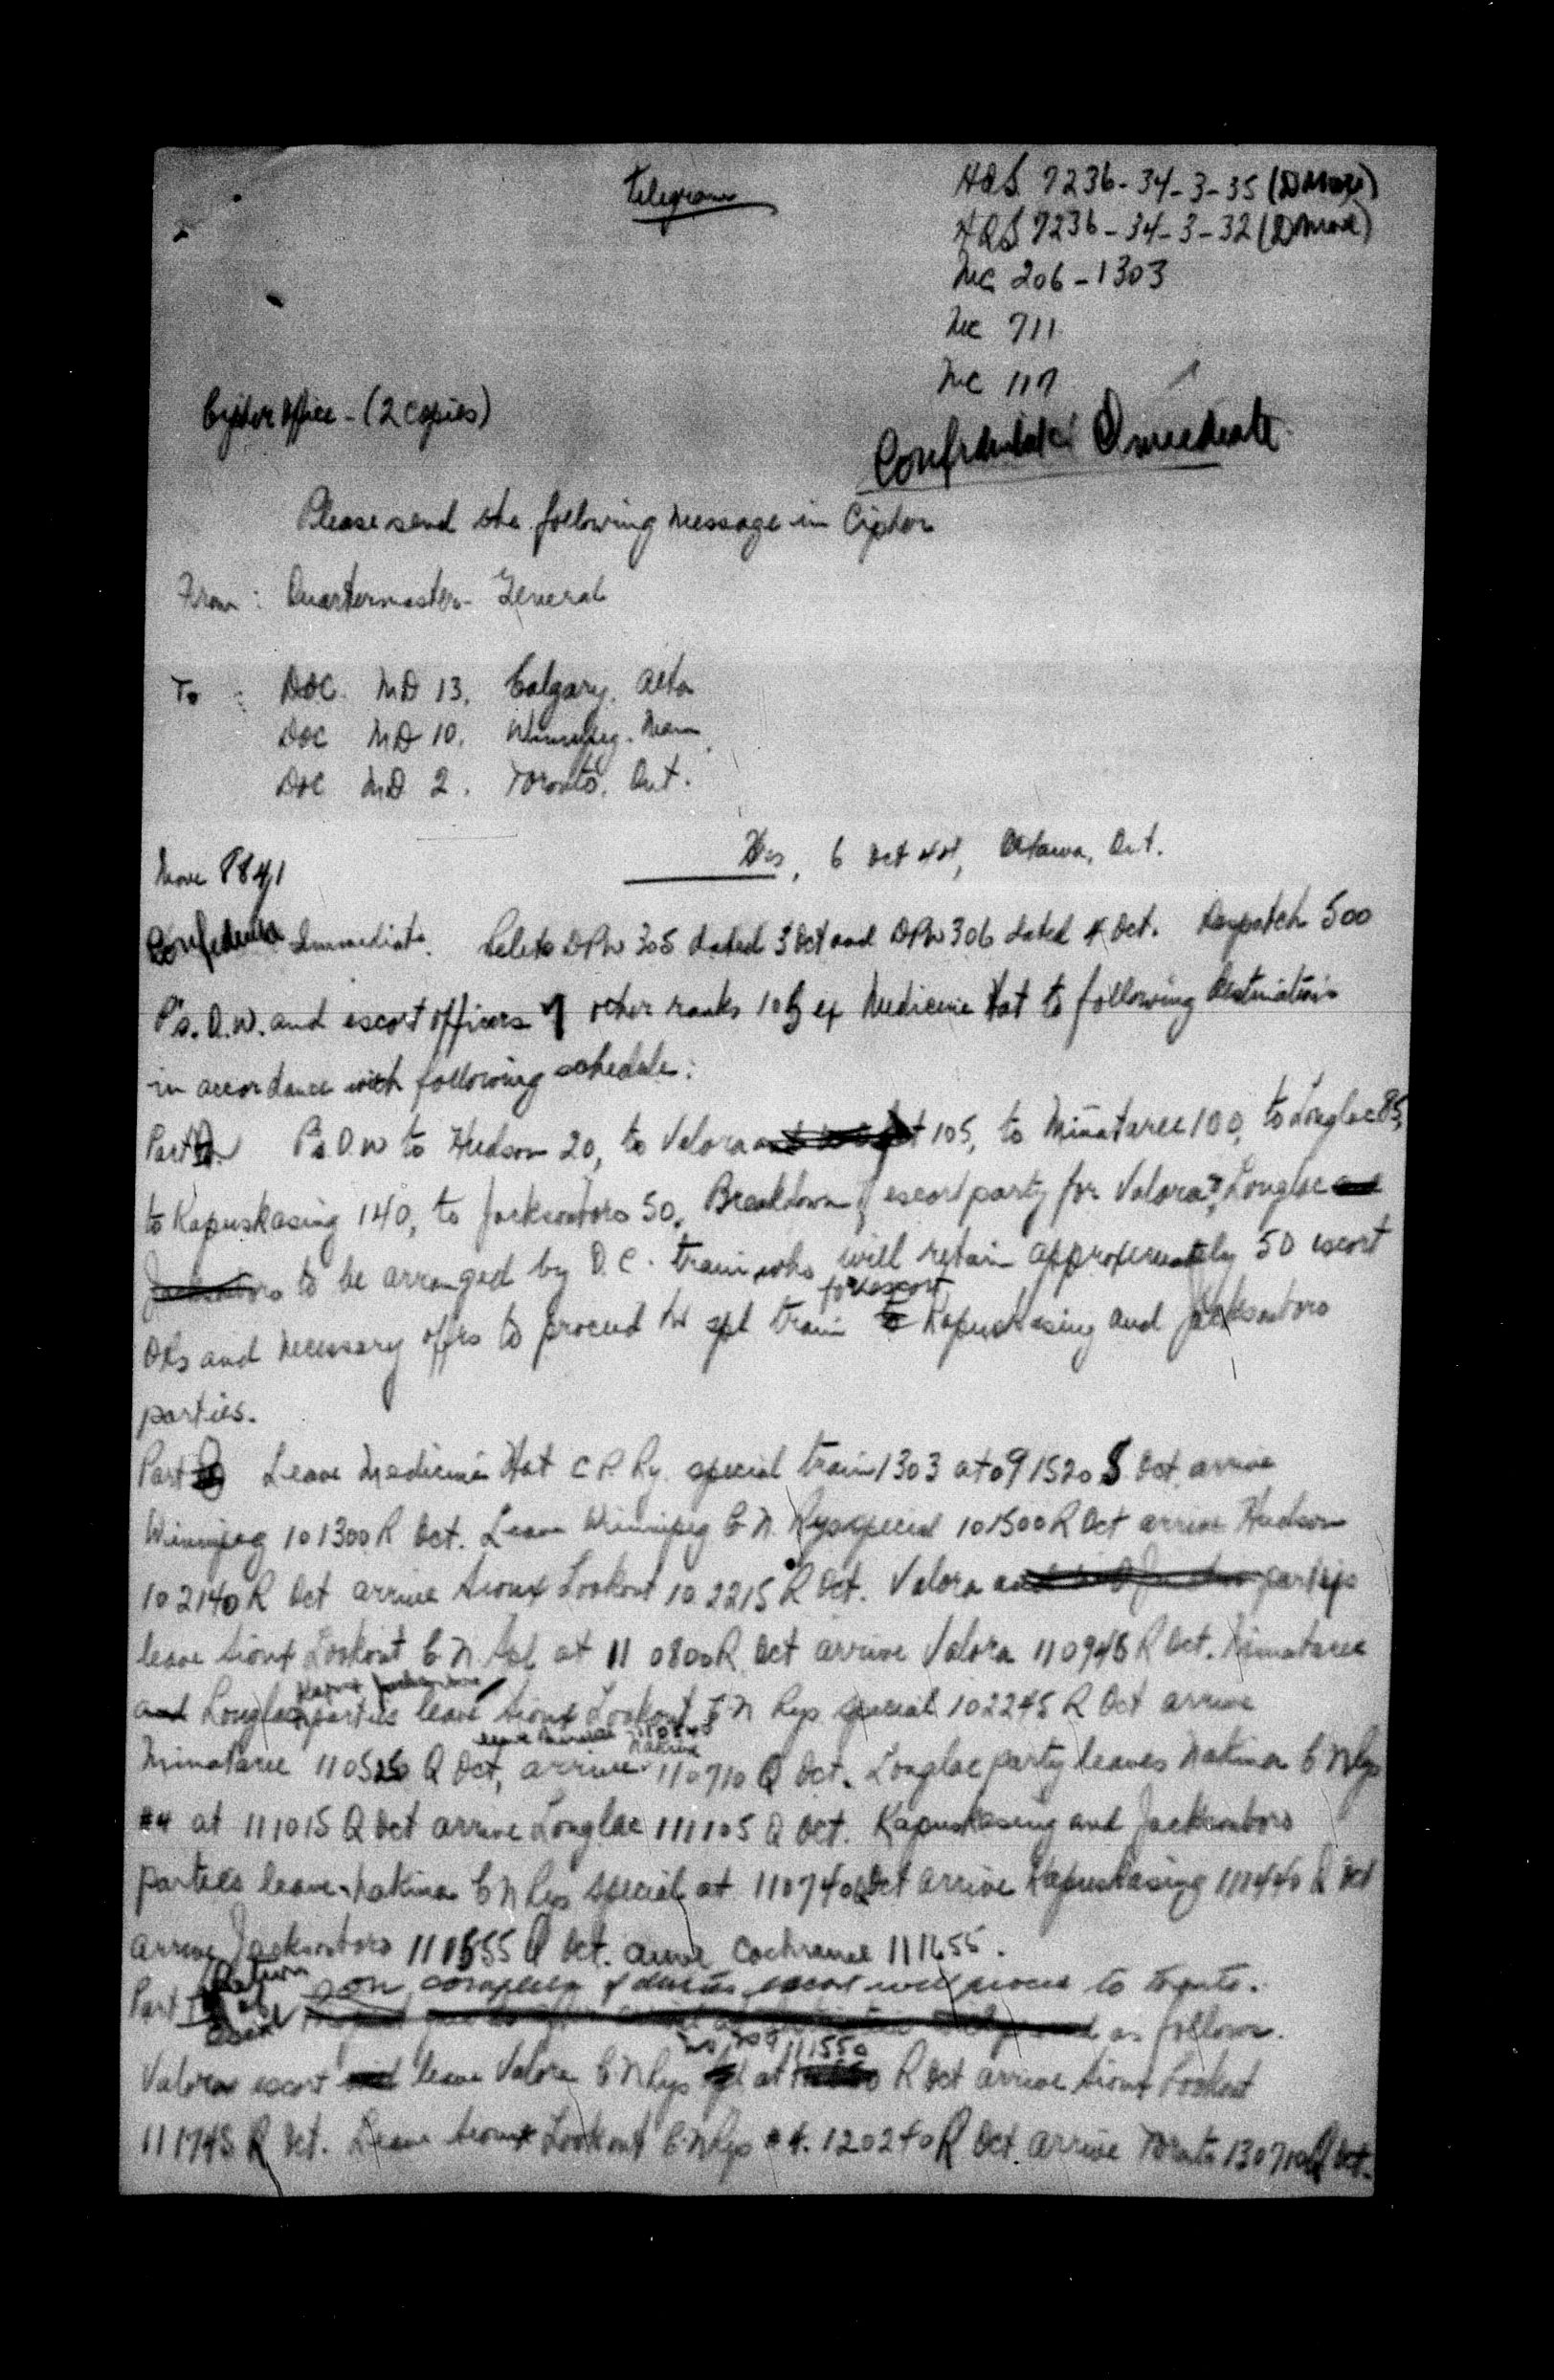 Telegram
HQS 7236-34-3-35 (D Mov)
HQS 7236-34-3-32 (D Mov)
MC 206-1303
MC 711
MC 117
Cypher Office - (2 copies)
Confidential Immediate
Please send the following message in Cipher
From : Quartermaster-General
To : DOC MD 13, Calgary, Alta
DOC MD 10, Winnipeg, Man
DOC MD 2, Toronto, Ont.
6 Oct 44, Ottawa, Ont.
Move 8841
Confidential Immediate. DPW 305 dated 3 Oct and DPW 306 dated 4 Oct. Despatch 500
P's.O.W. and escort officers 7 other ranks ex Medicine Hat to following destinations
in accordance with following schedule:
Part P's.O.W to Hudson 20, to Valora 105, to Minataree 100, to Longlac 85,
to Kapuskasing 140, to Jacksonboro 50. Breakdown of escort party for Valora, Longlac and
Jacksonboro to be arranged by O.C. train who will retain approximately 50 escort
for escort
ORs and necessary offrs to proceed spl train to Kapuskasing and Jacksonboro
parties.
Part Leave Medicine Hat C.P.Ry. special train 1303 at 091520 S Oct arrive
Winnipeg 101300 R Oct. Leave Winnipeg C.N. Rys special 101500 R Oct arrive Hudson
102140 R Oct arrive Sioux Lookout 102215 R Oct. Valora parties
leave Sioux Lookout C.N. Spl at 110800 R Oct arrive Valora 110945 R Oct. Minataree
and Longlac parties leave Sioux Lookout C N Rys special 102245 R Oct arrive
leave Minataree Nakina
Minataree Q Oct, arrive 110710 Q Oct. Longlac party leaves Nakina C N Rys
#4 at 111015 Q Oct arrive Longlac 111105 Q Oct. Kapuskasing and Jacksonboro
parties leave Nakina C N Rys special at 110740 Q Oct arrive Kapuskasing 111440 Q Oct
arrive Jacksonboro 111555 Q Oct. arrive Cochrane 111655.
Return of
Part on completion of duties escort will proceed to Toronto.
escort as follows.
111550
Valora escort leave Valora C N Rys at R Oct arrive Sioux Lookout
111745 R Oct. Leave Sioux Lookout C.N Rys #4. 120240 R Oct. arrive Toronto 130710 Q Oct.